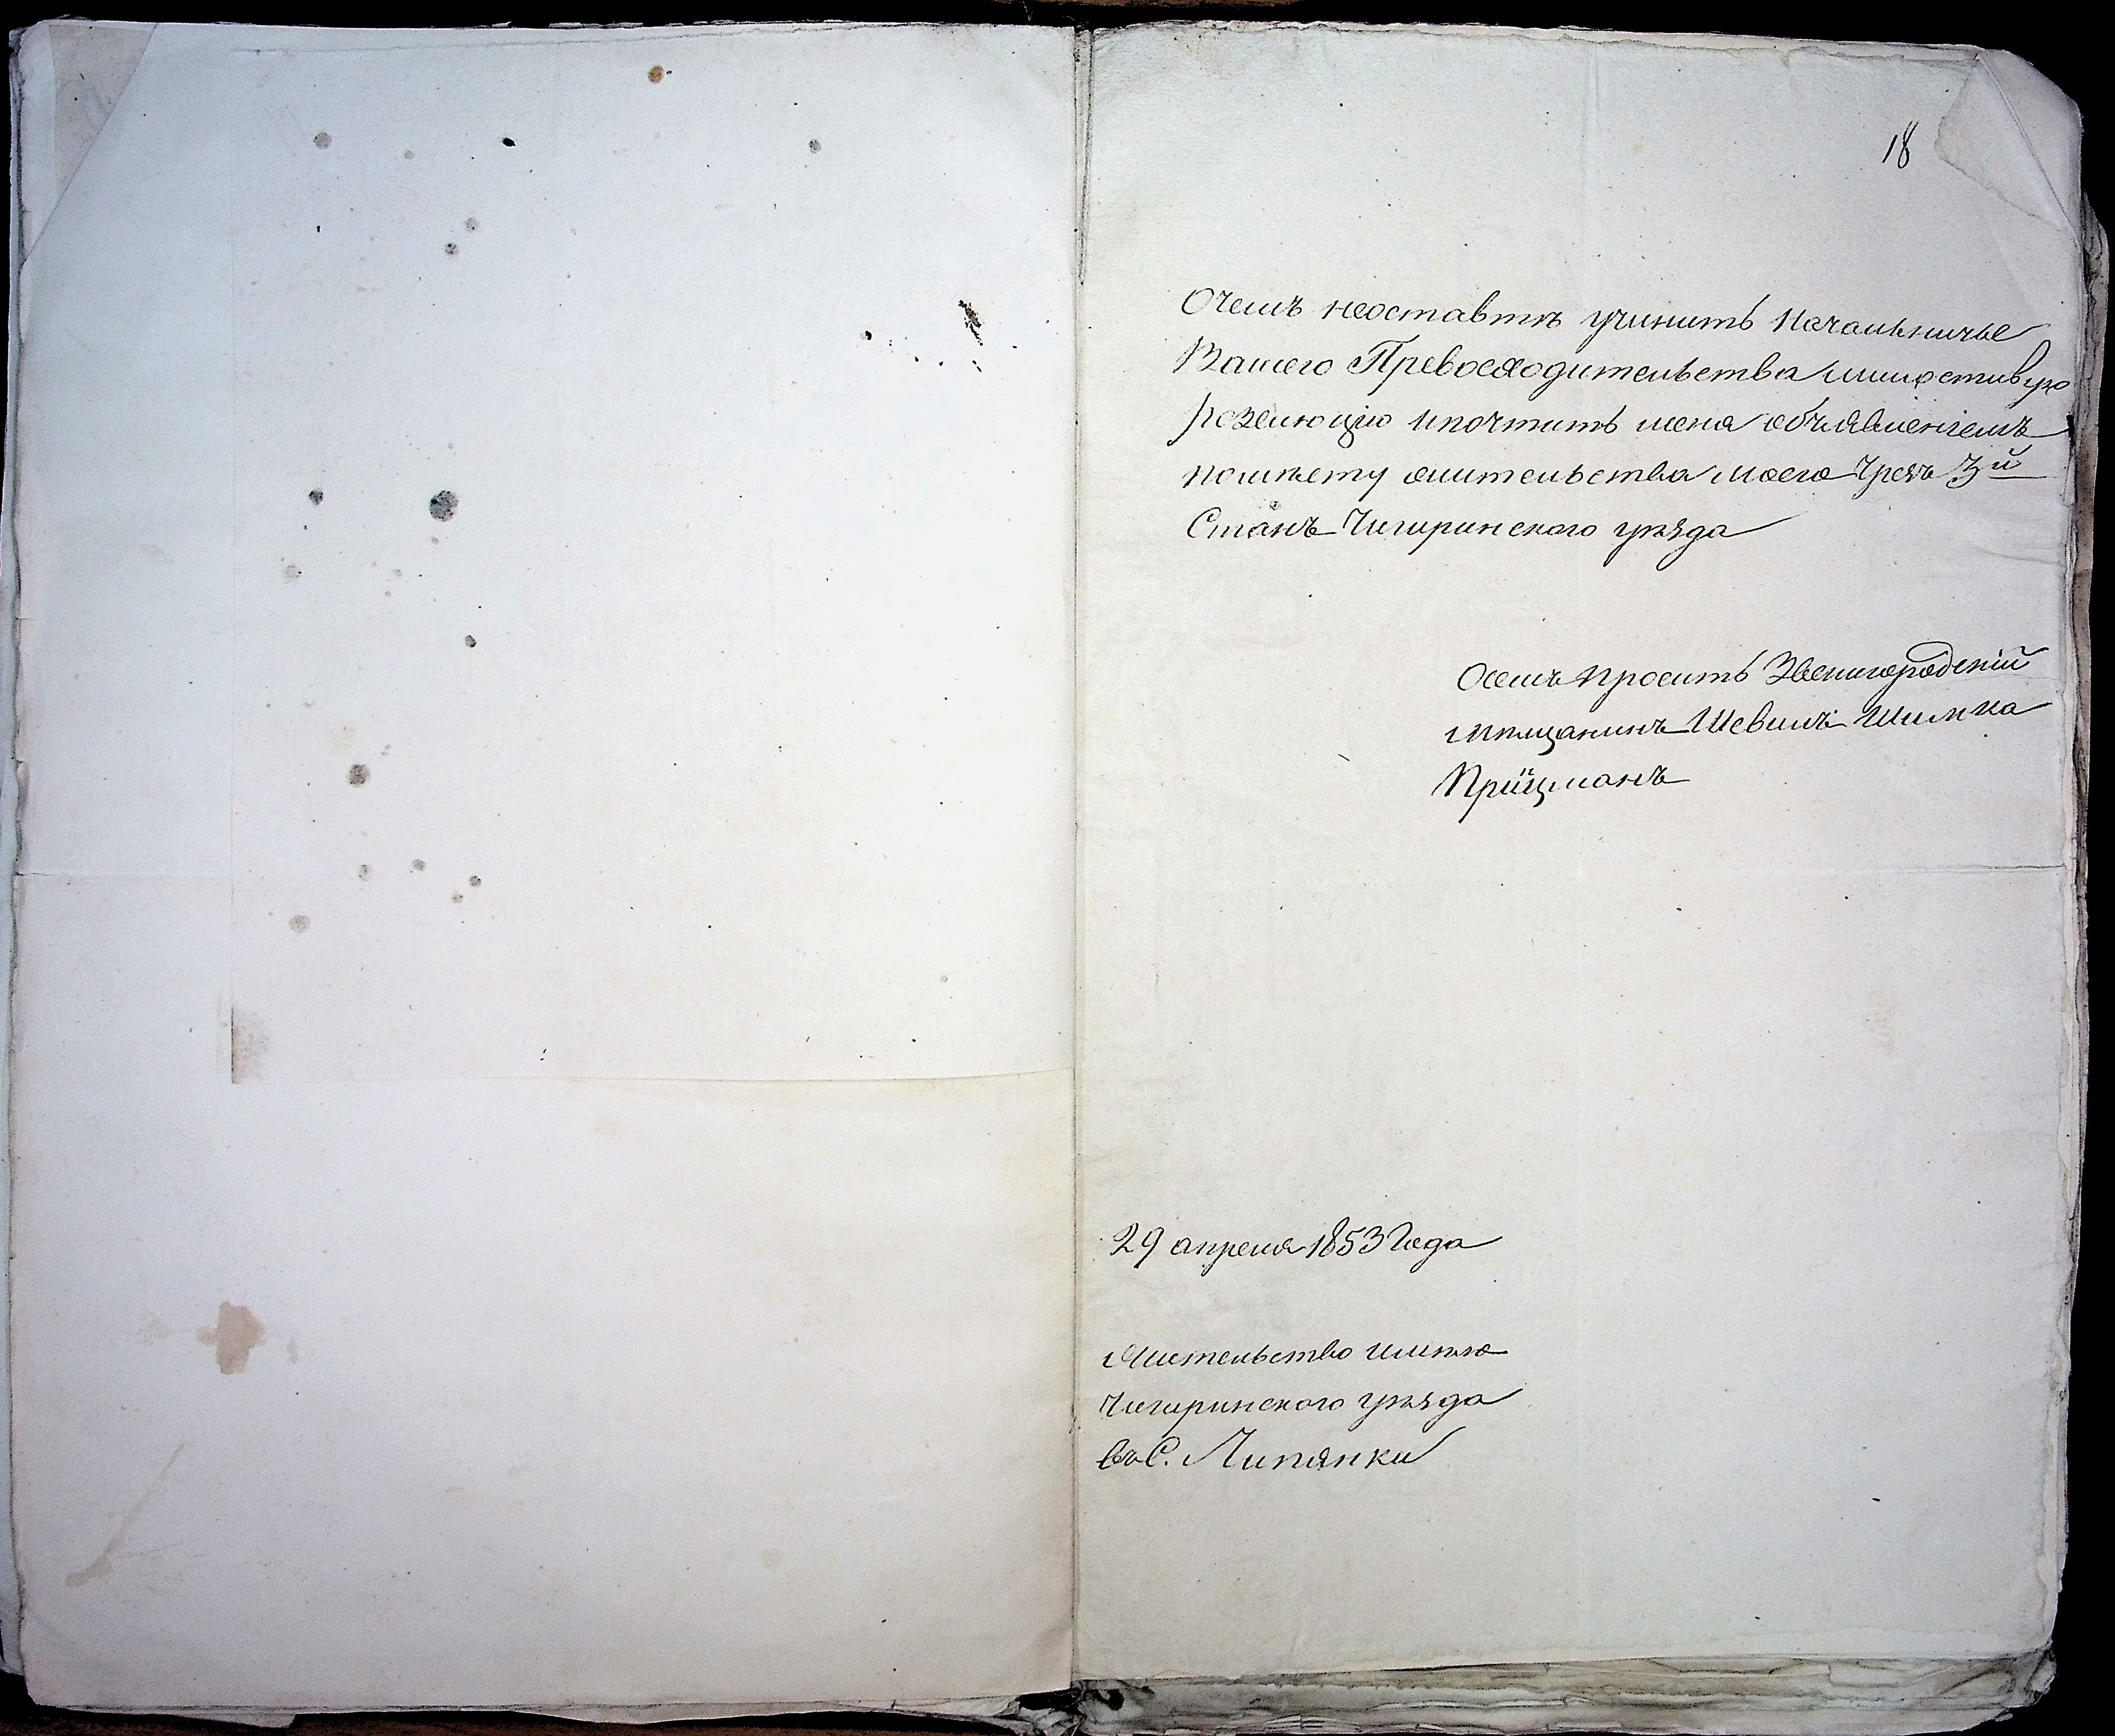 18
Очемъ неоставить учинить Начальничье
Вашего Превосходительства милостивую
резолюцію ипочтить меня объявленіемъ
помѣсту жительства моего Чрезъ 3й
Станъ Чигиринского уѣзда
Осемъ просить Звенигородскій
мѣщанинъ Шевиль Шимка
Прицманъ
29 апреля 1853 Года
Жительство имѣю
Чигиринского уѣзда
въ С. Липянки